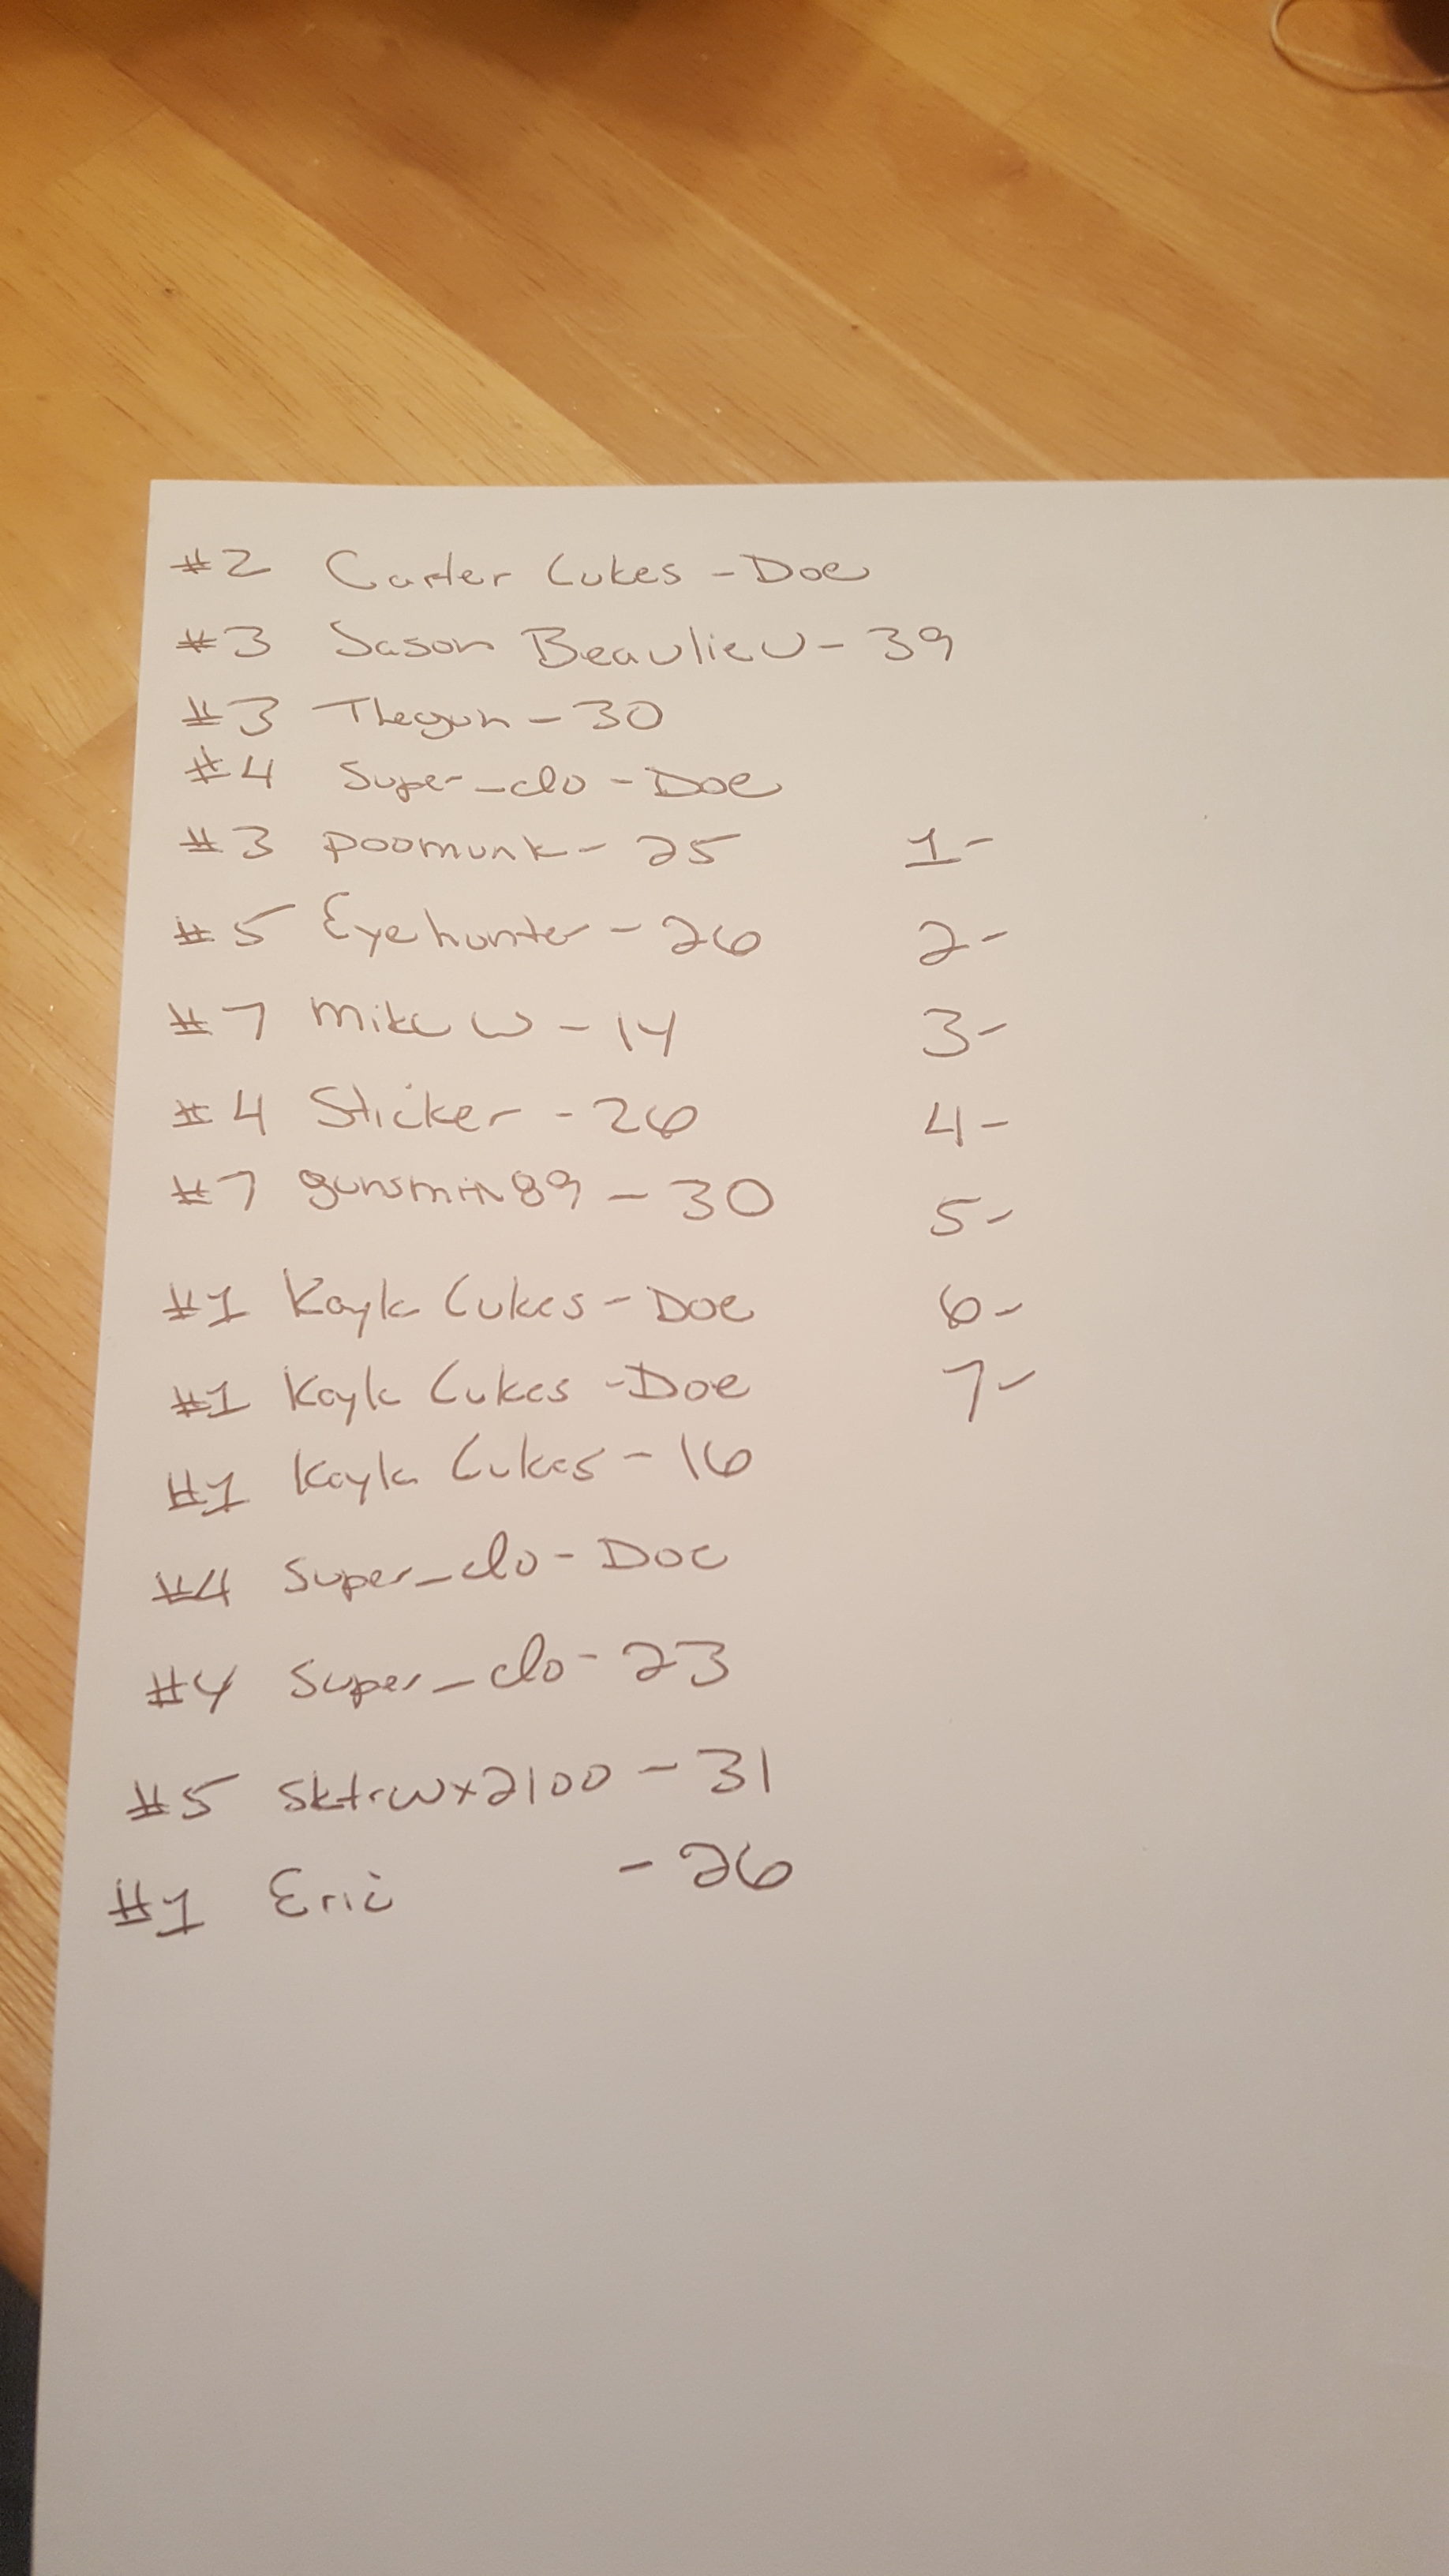 #2 Carter Lukes - Doe
#3 Jason Beaulieu - 39
#3 Thegun - 30
#4 Super_clo - Doe
#3 poomunk - 25
#5 Eyehunter - 26
#7 Mike W - 14
#4 Sticker - 26
#7 gunsmith89 - 30
#1 Kayla Lukes - Doe
#1 Kayla Lukes - Doe
#1 Kayla Lukes - 16
#4 Super_clo - Doe
#4 Super_clo - 23
#5 Sktrwx2100 - 31
#1 Eric - 26
1-
2-
3-
4-
5-
6-
7-